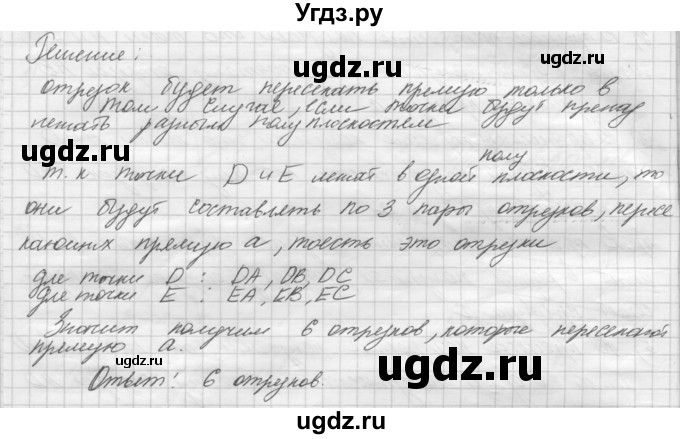 Угдз.ру
Решение:
отрезок будет пересекать прямую только в
том случае, если точки будут принад
лежать разным полуплоскостям
полу
т.к точки D и E лежат в одной плоскости, то
они будут составлять по 3 пары отрезков, пересе
кающих прямую a, тоесть это отрезки
для точки D : DA, DB, DC
для точки E : EA, EB, EC
Значит получим 6 отрезков, которые пересекают
прямую a.
Ответ: 6 отрезков.
uqdz.ru
uqdz.ru
uqdz.ru
uqdz.ru
uqdz.ru
uqdz.ru
uqdz.ru
uqdz.ru